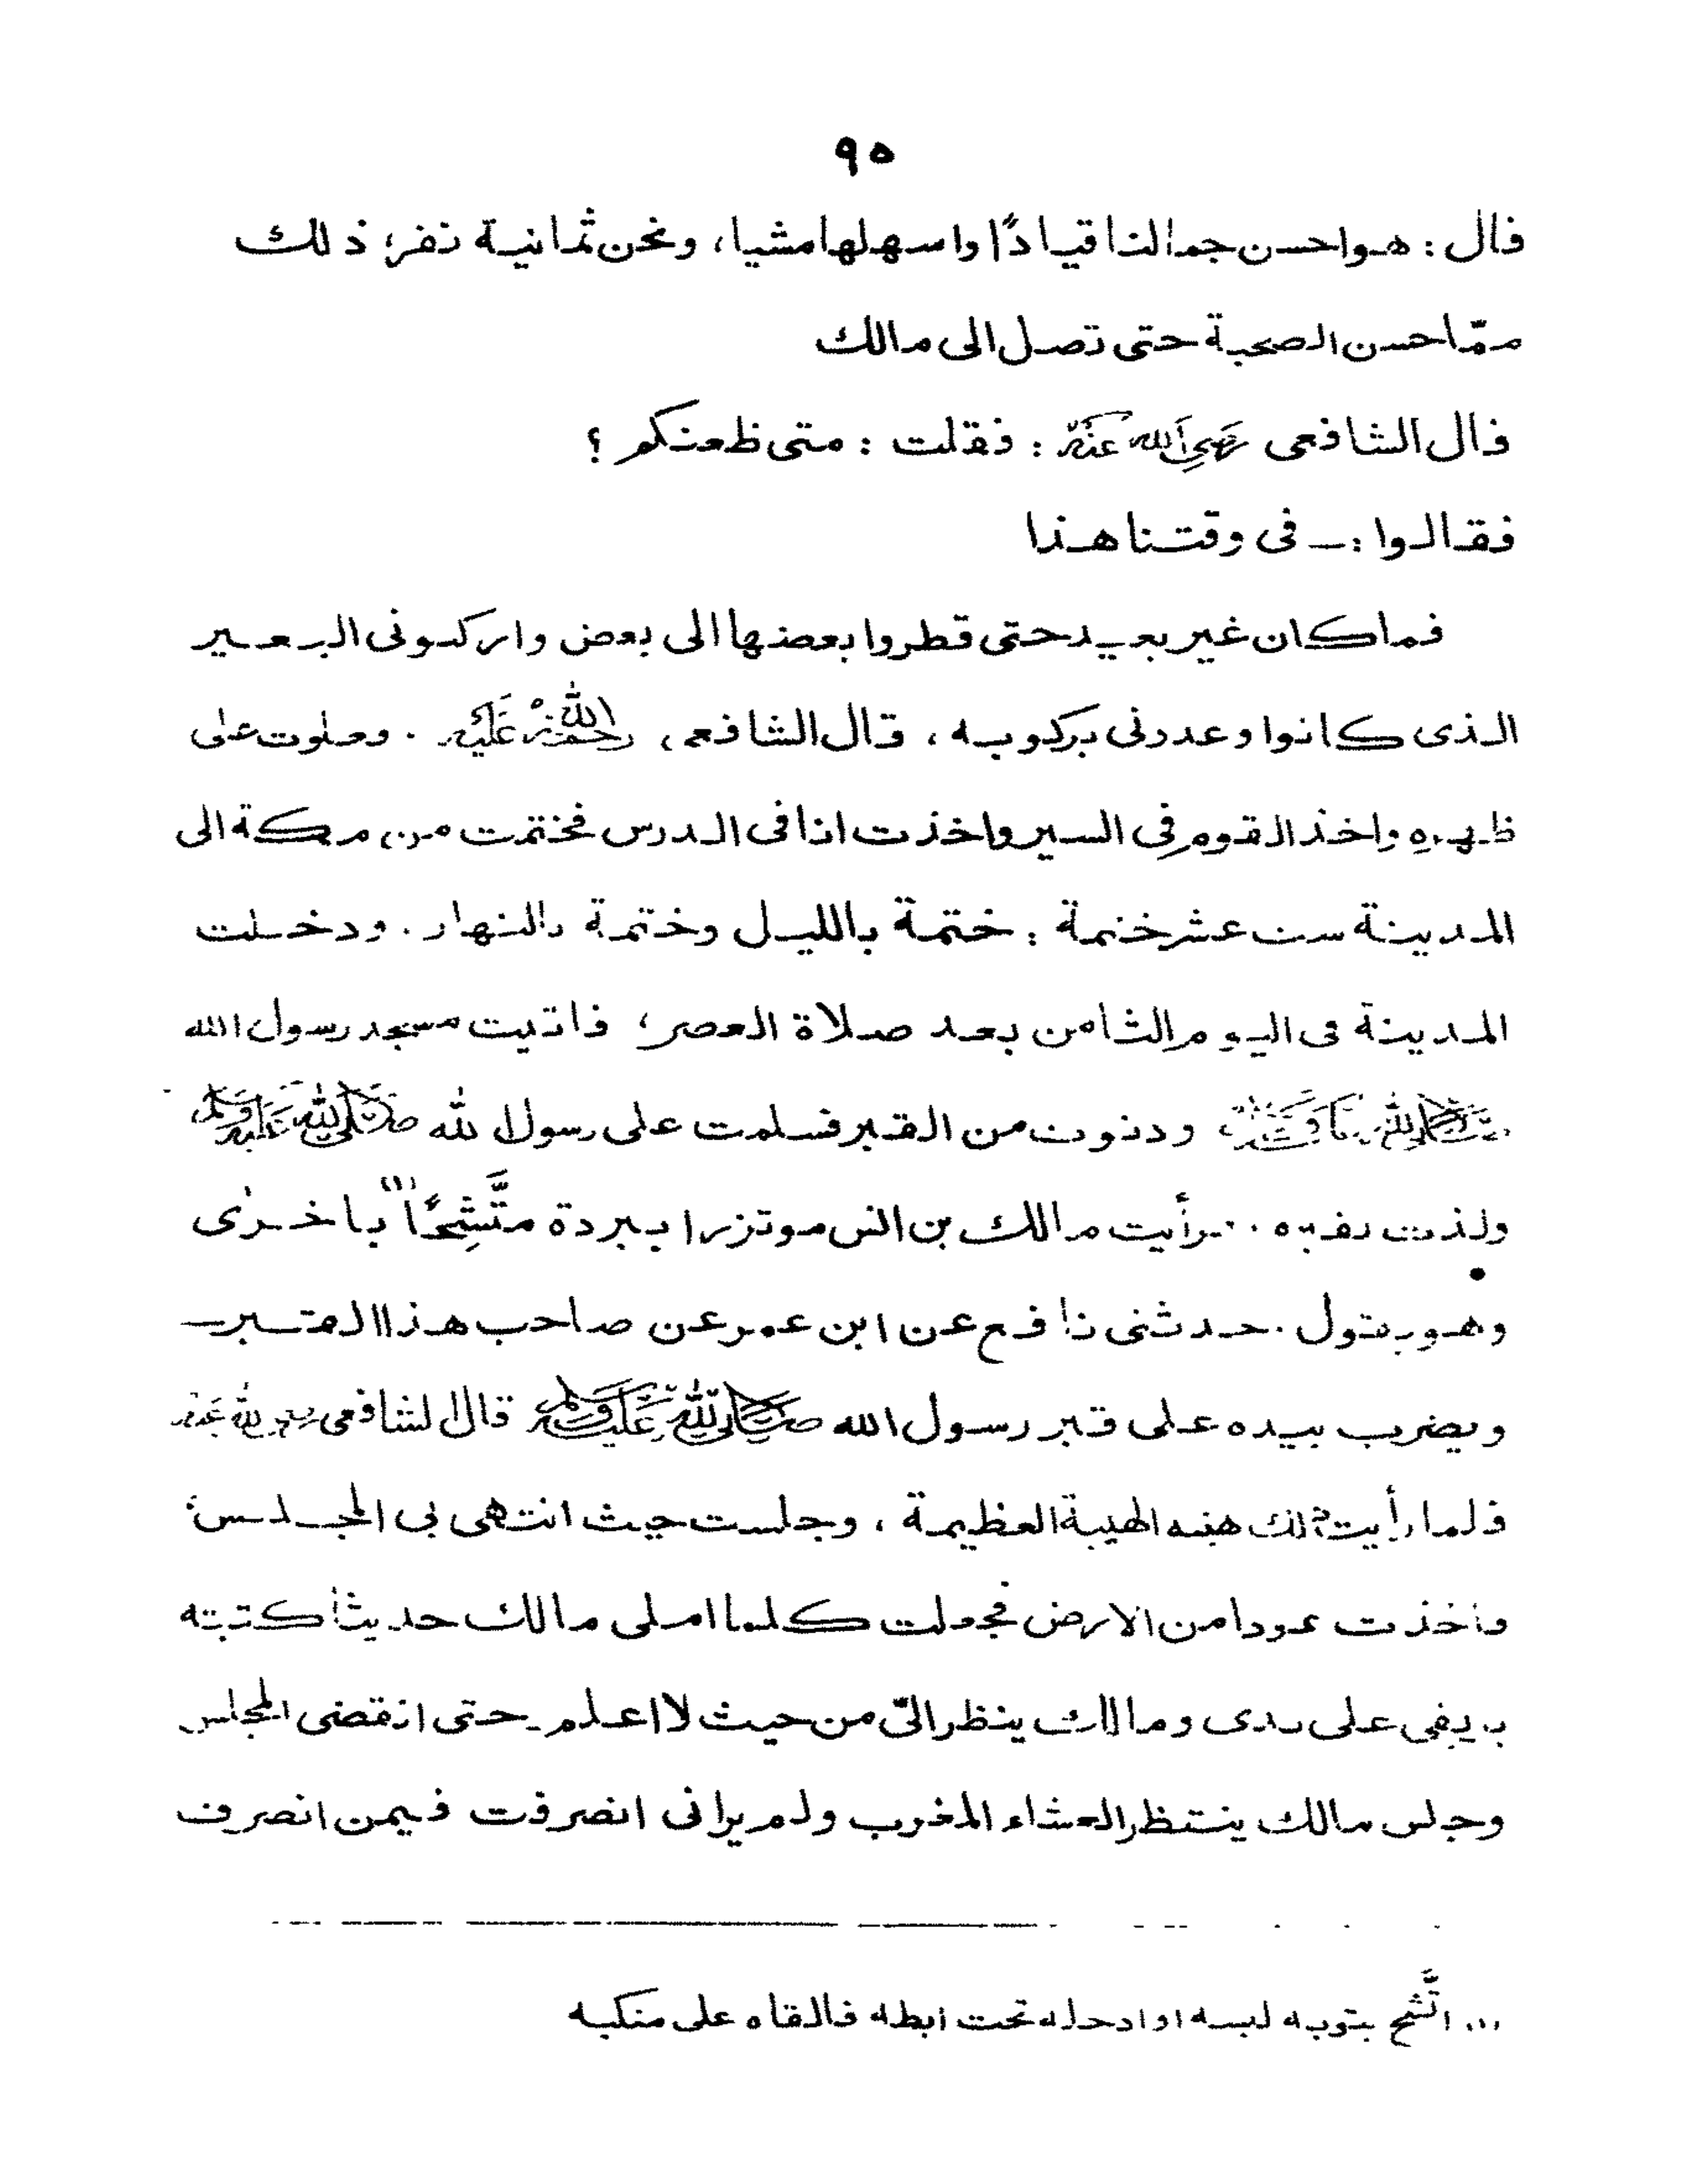 ٩٥
قال : هو احسن جمالنا قيادًا واسهلها مشيا ، ونحن ثمانية نفر ؛ ذلك
ممّا حسن الصحبة حتى تصل الى مالك
قال الشافعى رَضِىَ اللهُ عَنْهُ : فقلت : متى ظعنكم ؟
فقالوا :ـ فى وقتنا هذا
فما كان غير بعيد حتى قطروا بعضها الى بعض واركبونى البعير
الذى كانوا وعدونى بركوبه ، قال الشافعى رحمة الله عليه . وعلوت على
ظهره واخذ القوم فى السير واخذت انا فى الدرس فختمت من مكة الى
المدينة ست عشر ختمة : ختمة بالليل وختمة بالنهار . ودخلت
المدينة فى اليوم الثامن بعد صلاة العصر ؛ فاتيت مسجد رسول الله
صلى الله عليه وسلم ودنوت من القبر فسلمت على رسول الله صلى الله عليه وسلم
ولذت بقبره . فرأيت مالك بن انس موتزرا ببردة متَّشِحًا (١) باخرى
وهو يقول . حدثنى نافع عن ابن عمر عن صاحب هذا القبر
ويضرب بيده على قبر رسول الله صلى الله عليه وسلم قال الشافعى رضى الله عنه
فلما رأيت ذلك هبته الهيبة العظيمة ، وجلست حيث انتهى بى المجلس
واخذت عودا من الارض فجعلت كلما املى مالك حديثا كتبته
بريقى على يدى ومالك ينظر الىّ من حيث لا اعلم ـ حتى انقضى المجلس
وجلس مالك ينتظر العشاء المغرب ولم يرانى انصرفت فيمن انصرف
(١) اتَّشح بثوبه لبسه او ادخله تحت ابطه فالقاه على منكبه